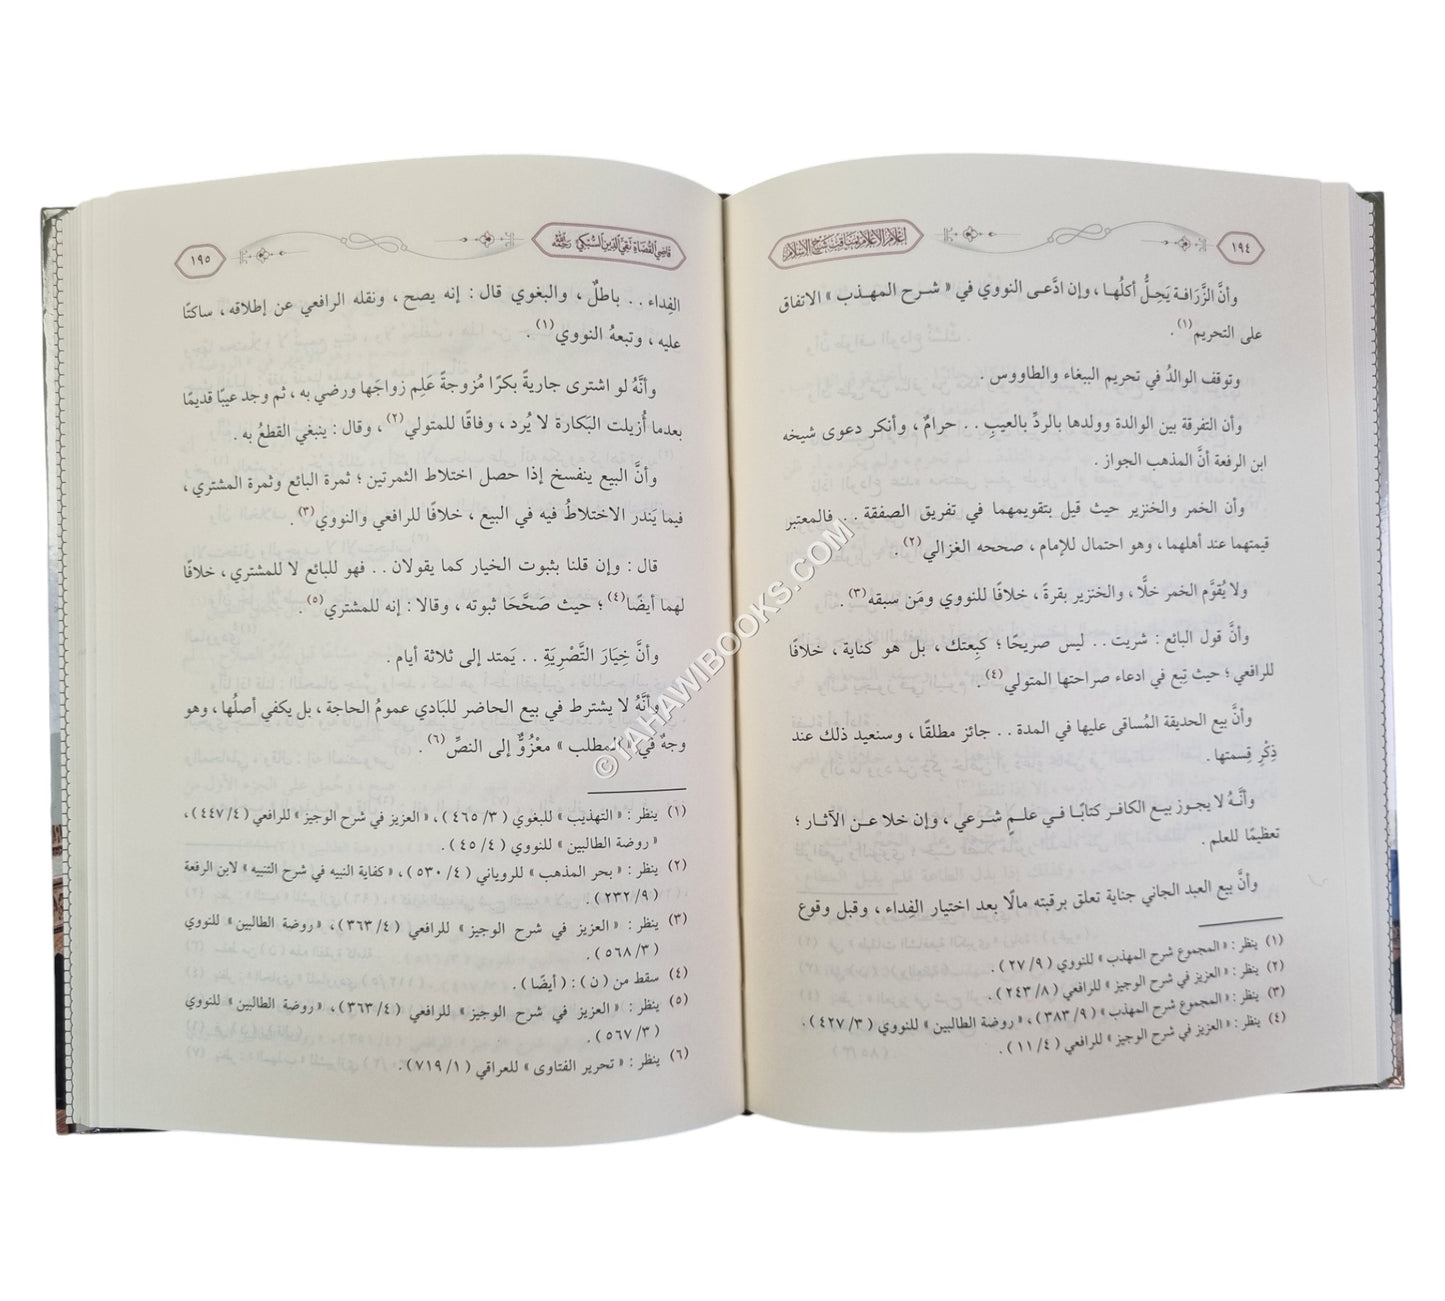 ١٩٤
إعلام الأعلام بمناقب شيخ الإسلام
وأنَّ الزَّرَافـة يَحِـلُّ أكلُهـا ، وإن ادَّعـى النووي في « شـرح المهـذب » الاتفاق
على التحريم(١) .
وتوقف الوالدُ في تحريم الببغاء والطاووس .
وأن التفرقة بين الوالدة وولدها بالردِّ بالعيبِ . . حرامٌ ، وأنكر دعوى شيخه
ابن الرفعة أنَّ المذهب الجواز .
وأن الخمر والخنزير حيث قيل بتقويمهما في تفريق الصفقة . . فالمعتبر
قيمتهما عند أهلهما ، وهو احتمال للإمام ، صححه الغزالي(٢) .
ولا يُقوَّم الخمر خلًّا ، والخنزير بقرةً ، خلافًا للنووي ومَن سبقه(٣) .
وأنَّ قول البائع : شريت . . ليس صريحًا ؛ كبِعتك ، بل هو كناية ، خلافًا
للرافعي ؛ حيث تبِع في ادعاء صراحتها المتولي(٤) .
وأنَّ بيع الحديقة المُساقى عليها في المدة . . جائز مطلقًا ، وسنعيد ذلك عند
ذِكْرِ قِسمتها .
وأنَّـهُ لا يجـوز بيـع الكافـر كتابًـا فـي علـمٍ شـرعي ، وإن خلا عـن الآثـار ؛
تعظيمًا للعلم .
وأنَّ بيع العبد الجاني جناية تعلق برقبته مالًا بعد اختيار الفِداء ، وقبل وقوع
(١) ينظر : « المجموع شرح المهذب » للنووي ( ٩/ ٢٧ ) .
(٢) ينظر : « العزيز في شرح الوجيز » للرافعي ( ٨/ ٢٤٣ ) .
(٣) ينظر : « المجموع شرح المهذب » ( ٩/ ٣٨٣ ) ، « روضة الطالبين » للنووي ( ٣/ ٤٢٧ ) .
(٤) ينظر : « العزيز في شرح الوجيز » للرافعي ( ٤/ ١١ ) .
قاضي القضاة تقي الدين السبكي رحمه الله
١٩٥
الفِداء . . باطلٌ ، والبغوي قال : إنه يصح ، ونقله الرافعي عن إطلاقه ، ساكتًا
عليه ، وتبعهُ النووي(١) .
وأنَّهُ لو اشترى جاريةً بكرًا مُزوجةً عَلِم زواجَها ورضي به ، ثم وجد عيبًا قديمًا
بعدما أُزيلت البَكارة لا يُرد ، وفاقًا للمتولي(٢) ، وقال : ينبغي القطعُ به .
وأنَّ البيع ينفسخ إذا حصل اختلاط الثمرتين ؛ ثمرة البائع وثمرة المشتري ،
فيما يَندر الاختلاطُ فيه في البيع ، خلافًا للرافعي والنووي(٣) .
قال : وإن قلنا بثبوت الخيار كما يقولان . . فهو للبائع لا للمشتري ، خلافًا
لهما أيضًا(٤) ؛ حيث صَحَّحَا ثبوته ، وقالا : إنه للمشتري(٥) .
وأنَّ خِيَارَ التَّصْرِيَةِ . . يَمتد إلى ثلاثة أيام .
وأنَّهُ لا يشترط في بيع الحاضر للبَادي عمومُ الحاجة ، بل يكفي أصلُها ، وهو
وجهٌ في « المطلب » معْزُوٌّ إلى النصِّ(٦) .
(١) ينظر : « التهذيب » للبغوي ( ٣/ ٤٦٥ ) ، « العزيز في شرح الوجيز » للرافعي ( ٤/ ٤٤٧ ) ،
« روضة الطالبين » للنووي ( ٤/ ٤٥ ) .
(٢) ينظر : « بحر المذهب » للروياني ( ٤/ ٥٣٠ ) ، « كفاية النبيه في شرح التنبيه » لابن الرفعة
( ٩/ ٢٣٢ ) .
(٣) ينظر : « العزيز في شرح الوجيز » للرافعي ( ٤/ ٣٦٣ ) ، « روضة الطالبين » للنووي
( ٣/ ٥٦٨ ) .
(٤) سقط من ( ن ) : ( أيضًا ) .
(٥) ينظر : « العزيز في شرح الوجيز » للرافعي ( ٤/ ٣٦٣ ) ، « روضة الطالبين » للنووي
( ٣/ ٥٦٧ ) .
(٦) ينظر : « تحرير الفتاوى » للعراقي ( ١/ ٧١٩ ) .
© TAHAWIBOOKS.COM